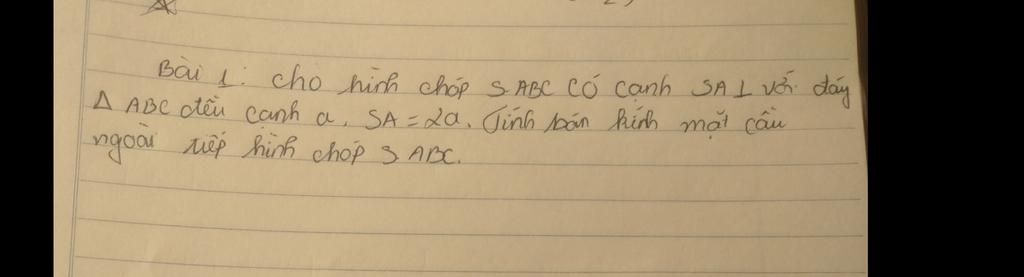 Bài 1: cho hình chóp S.ABC có cạnh SA ⊥ với đáy
Δ ABC đều cạnh a. SA = 2a. Tính bán kính mặt cầu
ngoài tiếp hình chóp S ABC.